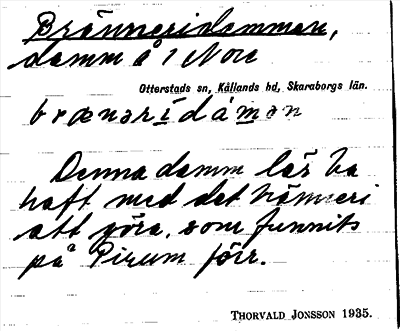 Bränneridammen,
damm å 1 Nore
Otterstads sn, Kållands hd, Skaraborgs län.
brænərídámən
Denna damm lär ha
haft med det bränneri
att göra, som funnits
på Pirum förr.
THORVALD JONSSON 1935.